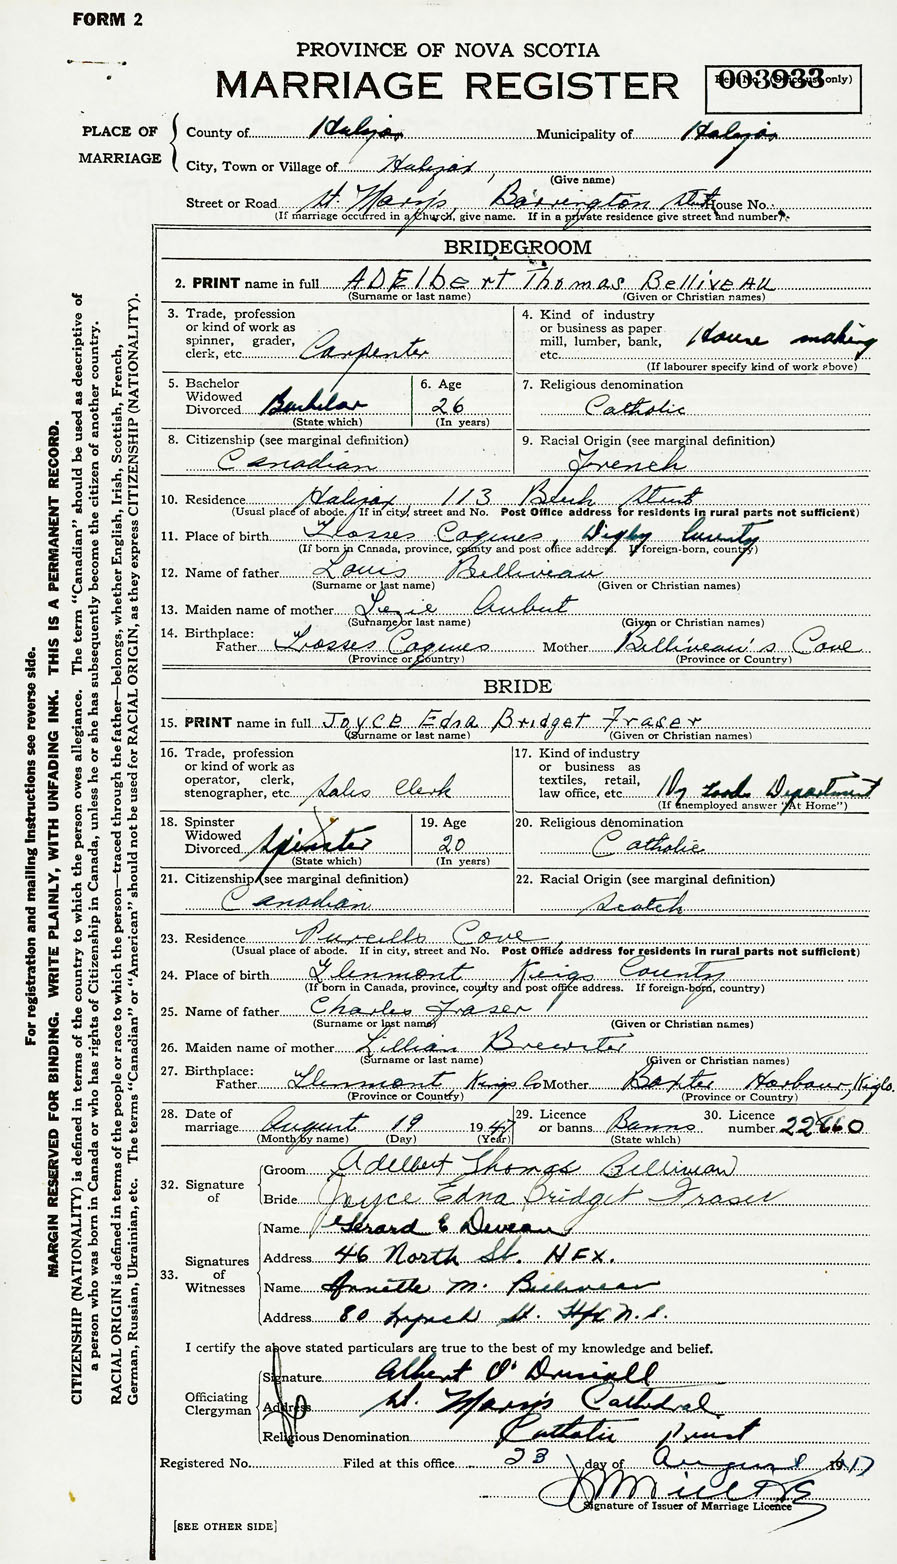 FORM 2
PROVINCE OF NOVA SCOTIA
MARRIAGE REGISTER
003933
(Office use only)
PLACE OF MARRIAGE
County of Halifax Municipality of Halifax
City, Town or Village of Halifax,
(Give name)
Street or Road St. Mary's, Barrington Street House No.
(If marriage occurred in a Church, give name. If in a private residence give street and number).
BRIDEGROOM
2. PRINT name in full ADElbert Thomas BelliveAU
(Surname or last name) (Given or Christian names)
3. Trade, profession or kind of work as spinner, grader, clerk, etc. Carpenter
4. Kind of industry or business as paper mill, lumber, bank, etc. House making
(If labourer specify kind of work above)
5. Bachelor Widowed Divorced Bachelor
(State which)
6. Age 26
(In years)
7. Religious denomination
Catholic
8. Citizenship (see marginal definition)
Canadian
9. Racial Origin (see marginal definition)
French
10. Residence Halifax 113 Beech Street
(Usual place of abode. If in city, street and No. Post Office address for residents in rural parts not sufficient)
11. Place of birth Grosses Coques, Digby County
(If born in Canada, province, county and post office address. If foreign-born, country)
12. Name of father Louis Belliveau
(Surname or last name) (Given or Christian names)
13. Maiden name of mother
(Surname or last name) (Given or Christian names)
14. Birthplace:
Father Grosses Coques Mother Belliveau's Cove
(Province or Country) (Province or Country)
BRIDE
15. PRINT name in full JOYCE Edna Bridget Fraser
(Surname or last name) (Given or Christian names)
16. Trade, profession or kind of work as operator, clerk, stenographer, etc Sales Clerk
17. Kind of industry or business as textiles, retail, law office, etc. Dry Goods Department
(If unemployed answer "At Home")
18. Spinster Widowed Divorced Spinster
(State which)
19. Age 20
(In years)
20. Religious denomination
Catholic
21. Citizenship (see marginal definition)
Canadian
22. Racial Origin (see marginal definition)
Scotch
23. Residence Purcells Cove,
(Usual place of abode. If in city, street and No. Post Office address for residents in rural parts not sufficient)
24. Place of birth Glenmont Kings County
(If born in Canada, province, county and post office address. If foreign-born, country)
25. Name of father Charles Fraser
(Surname or last name) (Given or Christian names)
26. Maiden name of mother Lillian Brewster
(Surname or last name) (Given or Christian names)
27. Birthplace:
Father Glenmont, Kings Co Mother Baxter Harbour,
(Province or Country) (Province or Country)
28. Date of marriage August 19 1947
(Month by name) (Day) (Year)
29. Licence or banns Banns
(State which)
30. Licence number 22660
32. Signature of
Groom Adelbert Thomas Belliveau
Bride Joyce Edna Bridget Fraser
33. Signatures of Witnesses
Name Gerard E Deveau
Address 46 North St. HFX.
Name Annette M. Belliveau
Address 80 Lynch St. Hfx N.S.
I certify the above stated particulars are true to the best of my knowledge and belief.
Officiating Clergyman
Signature Albert O'Driscoll
Address St. Mary's Cathedral
Religious Denomination Catholic Priest
Registered No. Filed at this office 23 day of August 1947
Signature of Issuer of Marriage Licence
[SEE OTHER SIDE]
For registration and mailing instructions see reverse side.
MARGIN RESERVED FOR BINDING. WRITE PLAINLY, WITH UNFADING INK. THIS IS A PERMANENT RECORD.
CITIZENSHIP (NATIONALITY) is defined in terms of the country to which the person owes allegiance. The term "Canadian" should be used as descriptive of
a person who was born in Canada or who has rights of Citizenship in Canada, unless he or she has subsequently become the citizen of another country.
RACIAL ORIGIN is defined in terms of the people or race to which the person—traced through the father—belongs, whether English, Irish, Scottish, French,
German, Russian, Ukrainian, etc. The terms "Canadian" or "American" should not be used for RACIAL ORIGIN, as they express CITIZENSHIP (NATIONALITY).